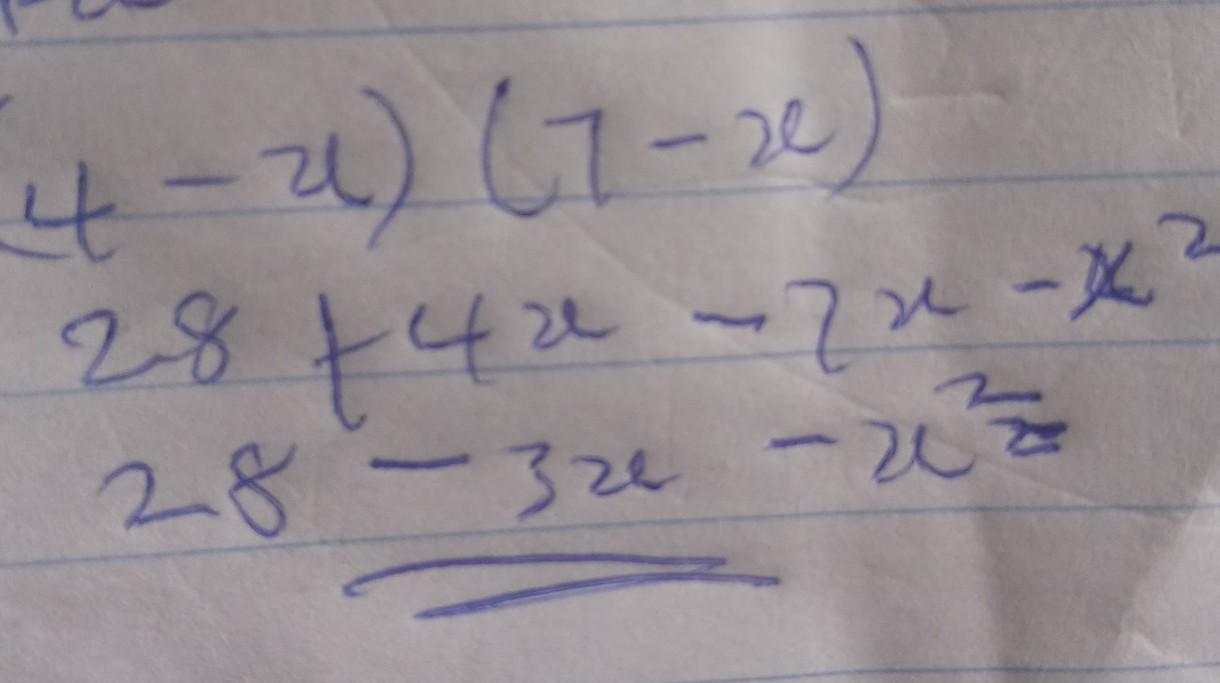 (4 - x) (7 - x)
28 + 4x - 7x - x²
28 - 3x - x²